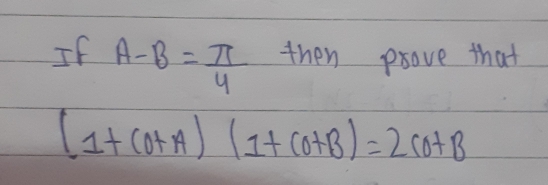 If A-B = π/4 then prove that
(1+cotA) (1+cotB)=2cotB